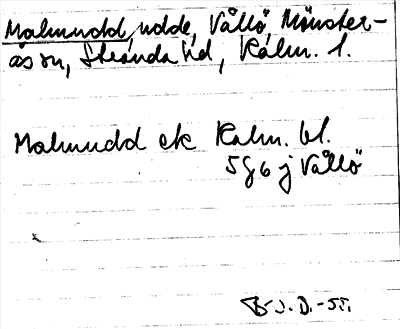 Malmudd, udde, Vållö, Mönster-
ås sn, Stranda hd, Kalm. l.
Malmudd ek Kalm. bl.
5g6j Vållö
J.D.-55.